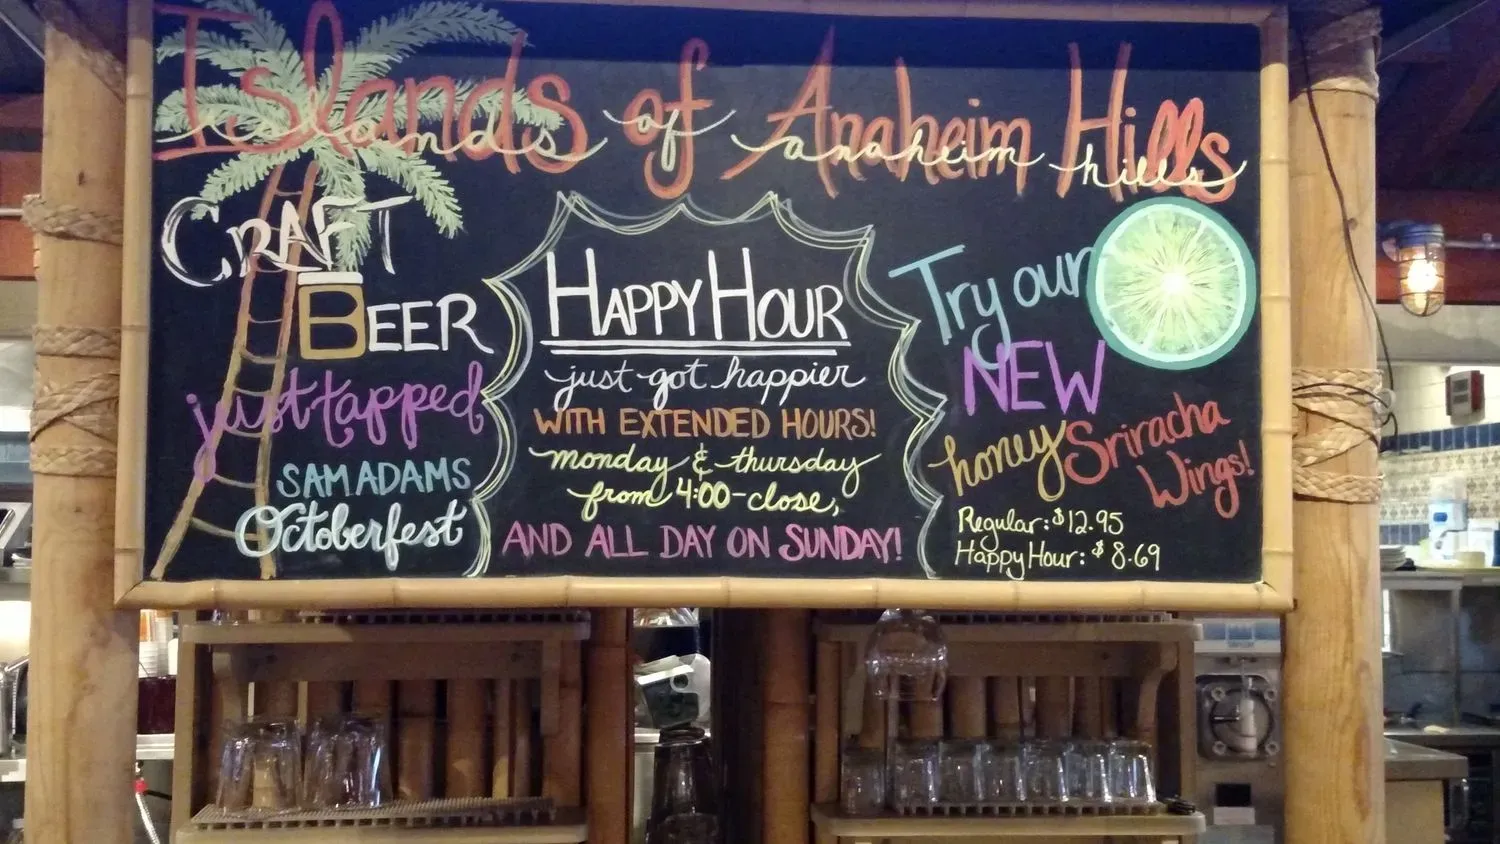 Islands of Anaheim Hills
islands of anaheim hills
CRAFT
BEER
just tapped
SAM ADAMS
Octoberfest
HAPPY HOUR
just got happier
WITH EXTENDED HOURS!
monday & thursday
from 4:00-close,
AND ALL DAY ON SUNDAY!
Try our
NEW
honey Sriracha
Wings!
Regular: $12.95
Happy Hour: $8.69